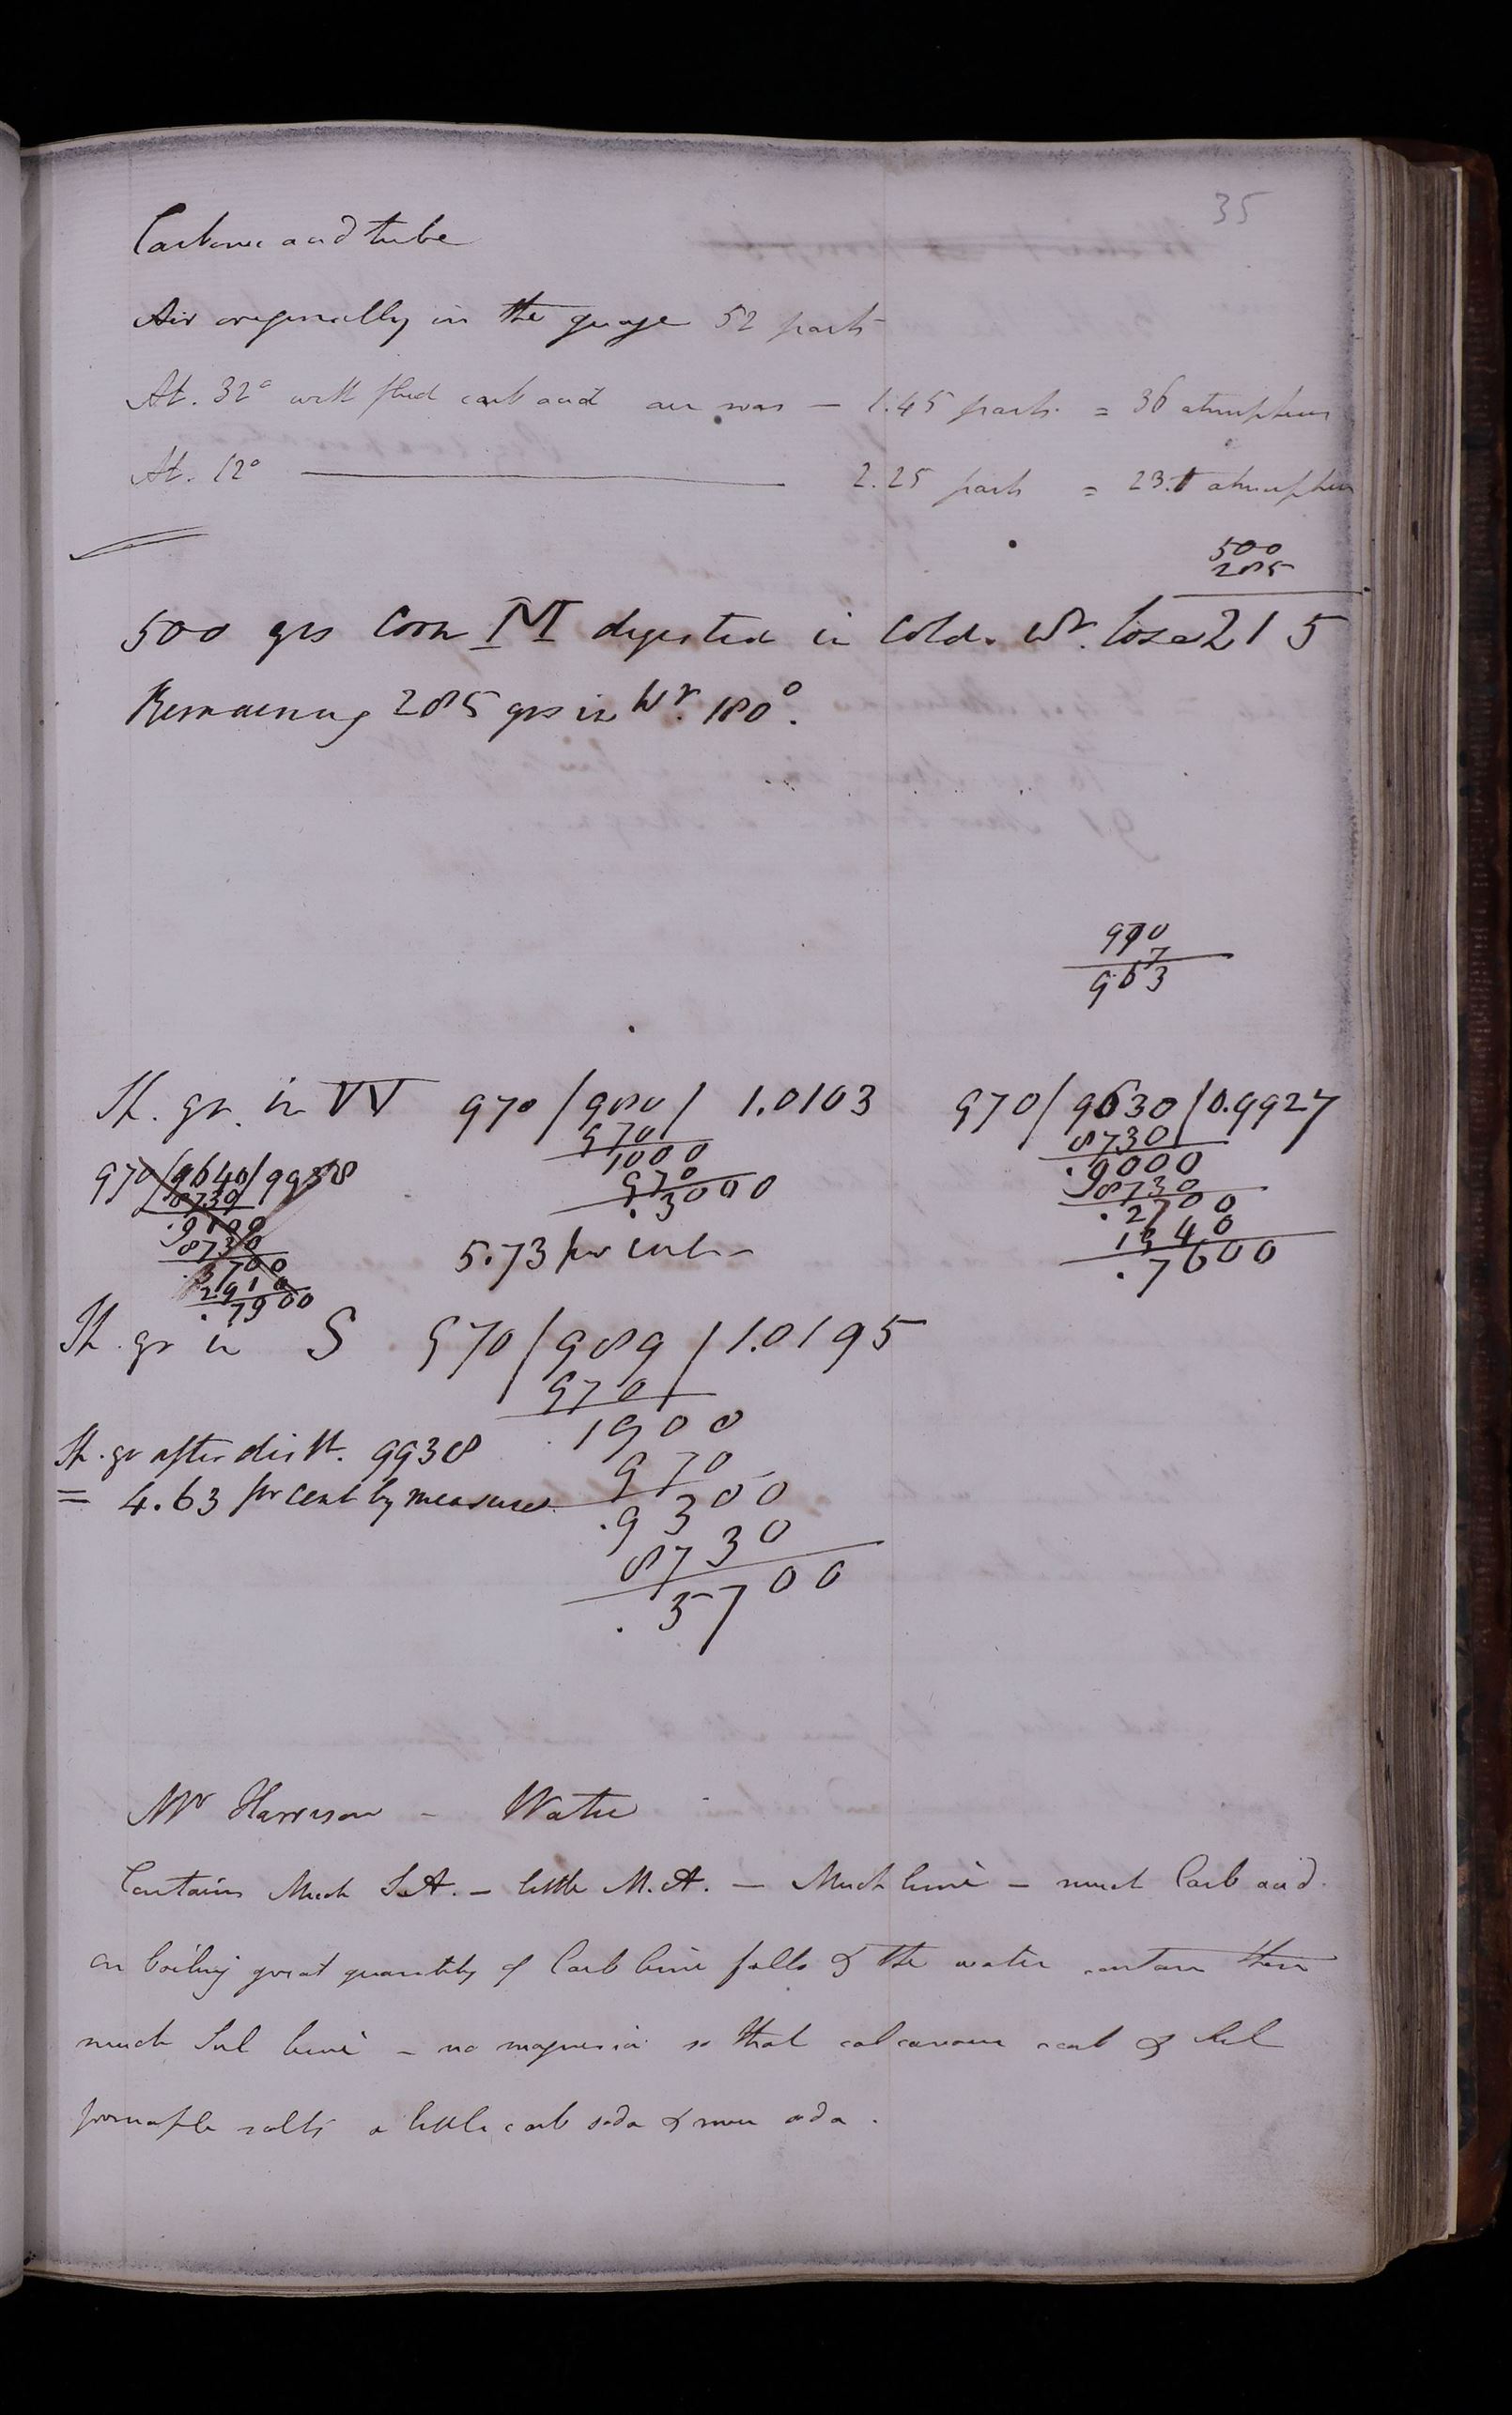 35
Carbonic acid tube
Air originally in the guage 52 parts
At. 32° with fluid carb acid air was — 1.45 parts = 36 atmospheres
At. 12° ——— 2.25 parts = 23.1 atmospheres
500
285
500 grs Corn M digested in Cold. Wr. lose 215
Remaining 285 grs in Wr. 180°.
970
7
963
Sp. gr. in W 970/980/ 1.0103 970/9630/0.9927
970 8730
1000 .9000
970 8730
.3000 .2700
1940
.7600
970/9640/9938
8730
.9100
8730
.3700
2910
.7900
5.73 per cent
Sp. gr in S 970/989/1.0195
970
.1900
970
.9300
8730
.5700
Sp. gr after distt. 9938
= 4.63 per cent by measure
Mr Harrison - Water
Contains Much S.A. - little M.A. - Much lime - much Carb acid.
on boiling great quantity of Carb lime falls & the water contain then
much Sul lime - no magnesia so that calcareous carb & Sul
principle salts a little carb soda & mur soda.